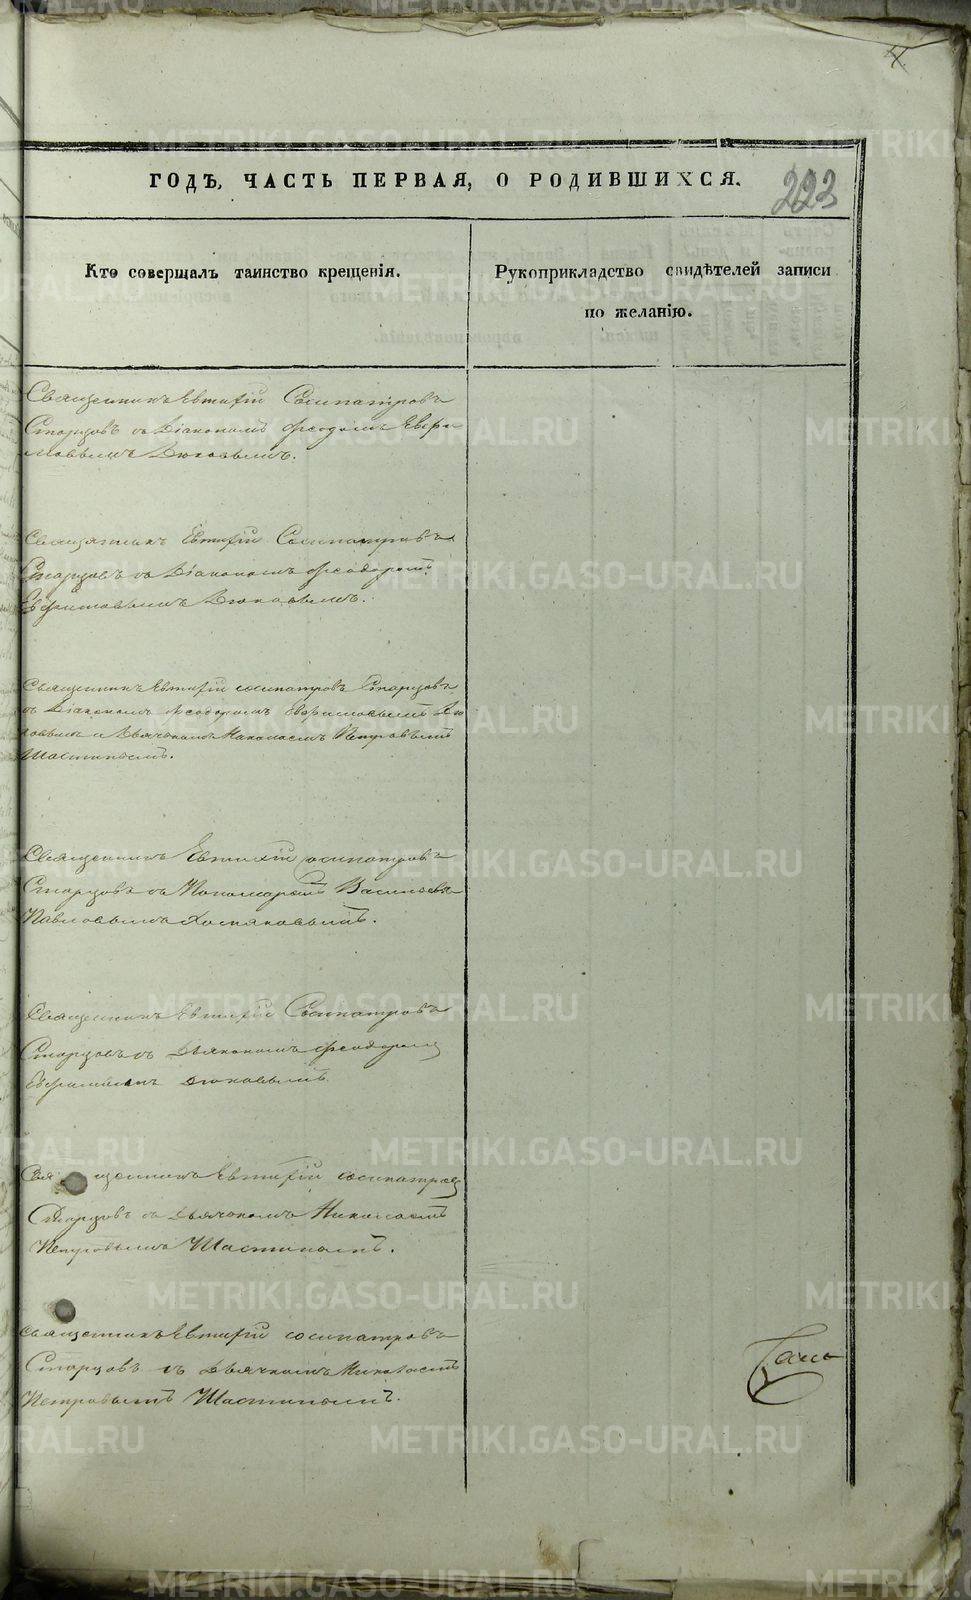 4.
ГОДЪ, ЧАСТЬ ПЕРВАЯ, О РОДИВШИХСЯ.
223
Кто совершалъ таинство крещенія.
Рукоприкладство свидѣтелей записи
по желанію.
Священникъ Евтихій Сосипатровъ
Старцовъ съ Діакономъ Феодоромъ Евфи
мовымъ
Священникъ Евтихій Сосипатровъ
Старцовъ съ Діакономъ Феодоромъ
Евфимовымъ
Священникъ Евтихій сосипатровъ Старцовъ
съ Діакономъ Феодоромъ Евфимовымъ
и Дьячкомъ Николаемъ Петровымъ
Шастинымъ.
Священникъ Евтихій сосипатровъ
Старцовъ съ Пономаремъ Василіемъ
Павловымъ Хомяковымъ.
Священникъ Евтихій Сосипатровъ
Старцовъ съ Діакономъ Феодоромъ
Евфимовымъ
Священникъ Евтихій сосипатровъ
Старцовъ съ Дьячкомъ Николаемъ
Петровымъ Шастинымъ.
Священникъ Евтихій сосипатровъ
Старцовъ съ Дьячкомъ Николаемъ
Петровымъ Шастинымъ.
METRIKI.GASO-URAL.RU